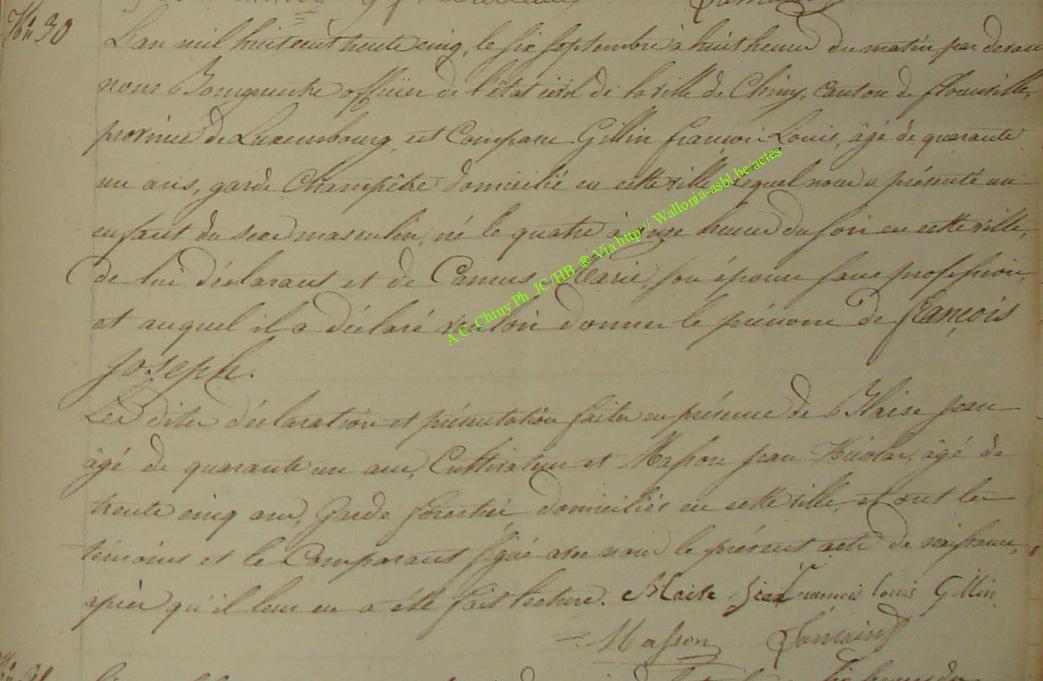 N° 30
L'an mil huit cent trente cinq, le six septembre à huit heures du matin par devant
nous officier de l'état civil de la ville de Chiny, canton de florenville,
province de Luxembourg, est Comparu Gillin françois Louis, âgé de quarante
un ans, garde Champêtre domicilié en cette ville, lequel nous a présenté un
enfant du sexe masculin, né le quatre à onze heures du soir en cette ville,
de lui déclarant et de Camus Marie, son épouse sans profession,
et auquel il a déclaré vouloir donner le prénom de françois
Joseph.
Les dites déclaration et présentation faites en présence de Blaise Jean
âgé de quarante un ans, Cultivateur et Masson Jean Nicolas, âgé de
trente cinq ans, Garde forestier domiciliés en cette ville, et ont les
témoins et le Comparant signé avec nous le présent acte de naissance,
après qu'il leur en a été fait lecture. Blaise Jean françois louis Gillin
Masson
A.C. Chiny Ph. JC /HB ® Via http:// Wallonia-asbl.be/actes